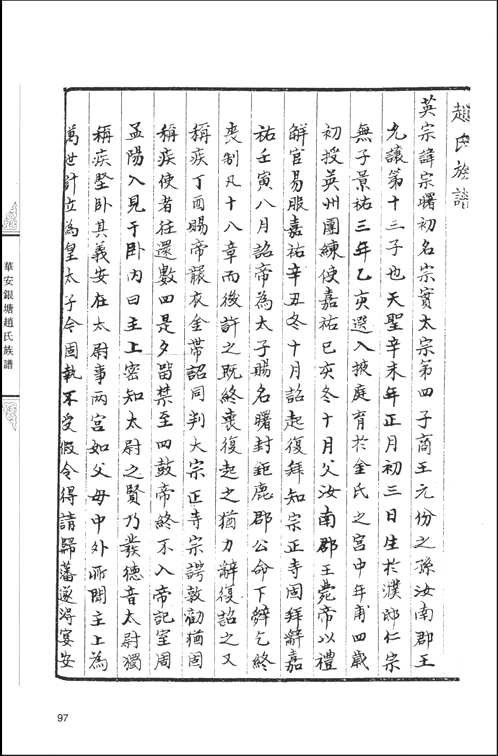 趙氏族譜
英宗諱宗曙初名宗實太宗第四子商王元份之孫汝南郡王
允讓第十三子也天聖辛未年正月初三日生於濮邸仁宗
無子景祐三年乙亥選入掖庭育於金氏之宮中年甫四歲
初授英州團練使嘉祐己亥冬十月父汝南郡王薨帝以禮
解官易服嘉祐辛丑冬十月詔起復拜知宗正寺固拜辭嘉
祐壬寅八月詔帝為太子賜名曙封鉅鹿郡公命下辭乞終
喪制凡十八章而後許之既終喪復起之猶力辭復詔之又
稱疾丁酉賜帝襲衣金帶詔同判大宗正寺宗諤敦勸猶固
稱疾使者往還數四是夕留禁至四鼓帝終不入帝記室周
孟陽入見于卧内曰主上密知太尉之賢乃發德音太尉獨
稱疾堅卧其義安在太尉事兩宮如父母中外所聞主上為
萬世計立為皇太子今固執不受假令得請歸藩遂得宴安
華安銀塘趙氏族譜
97